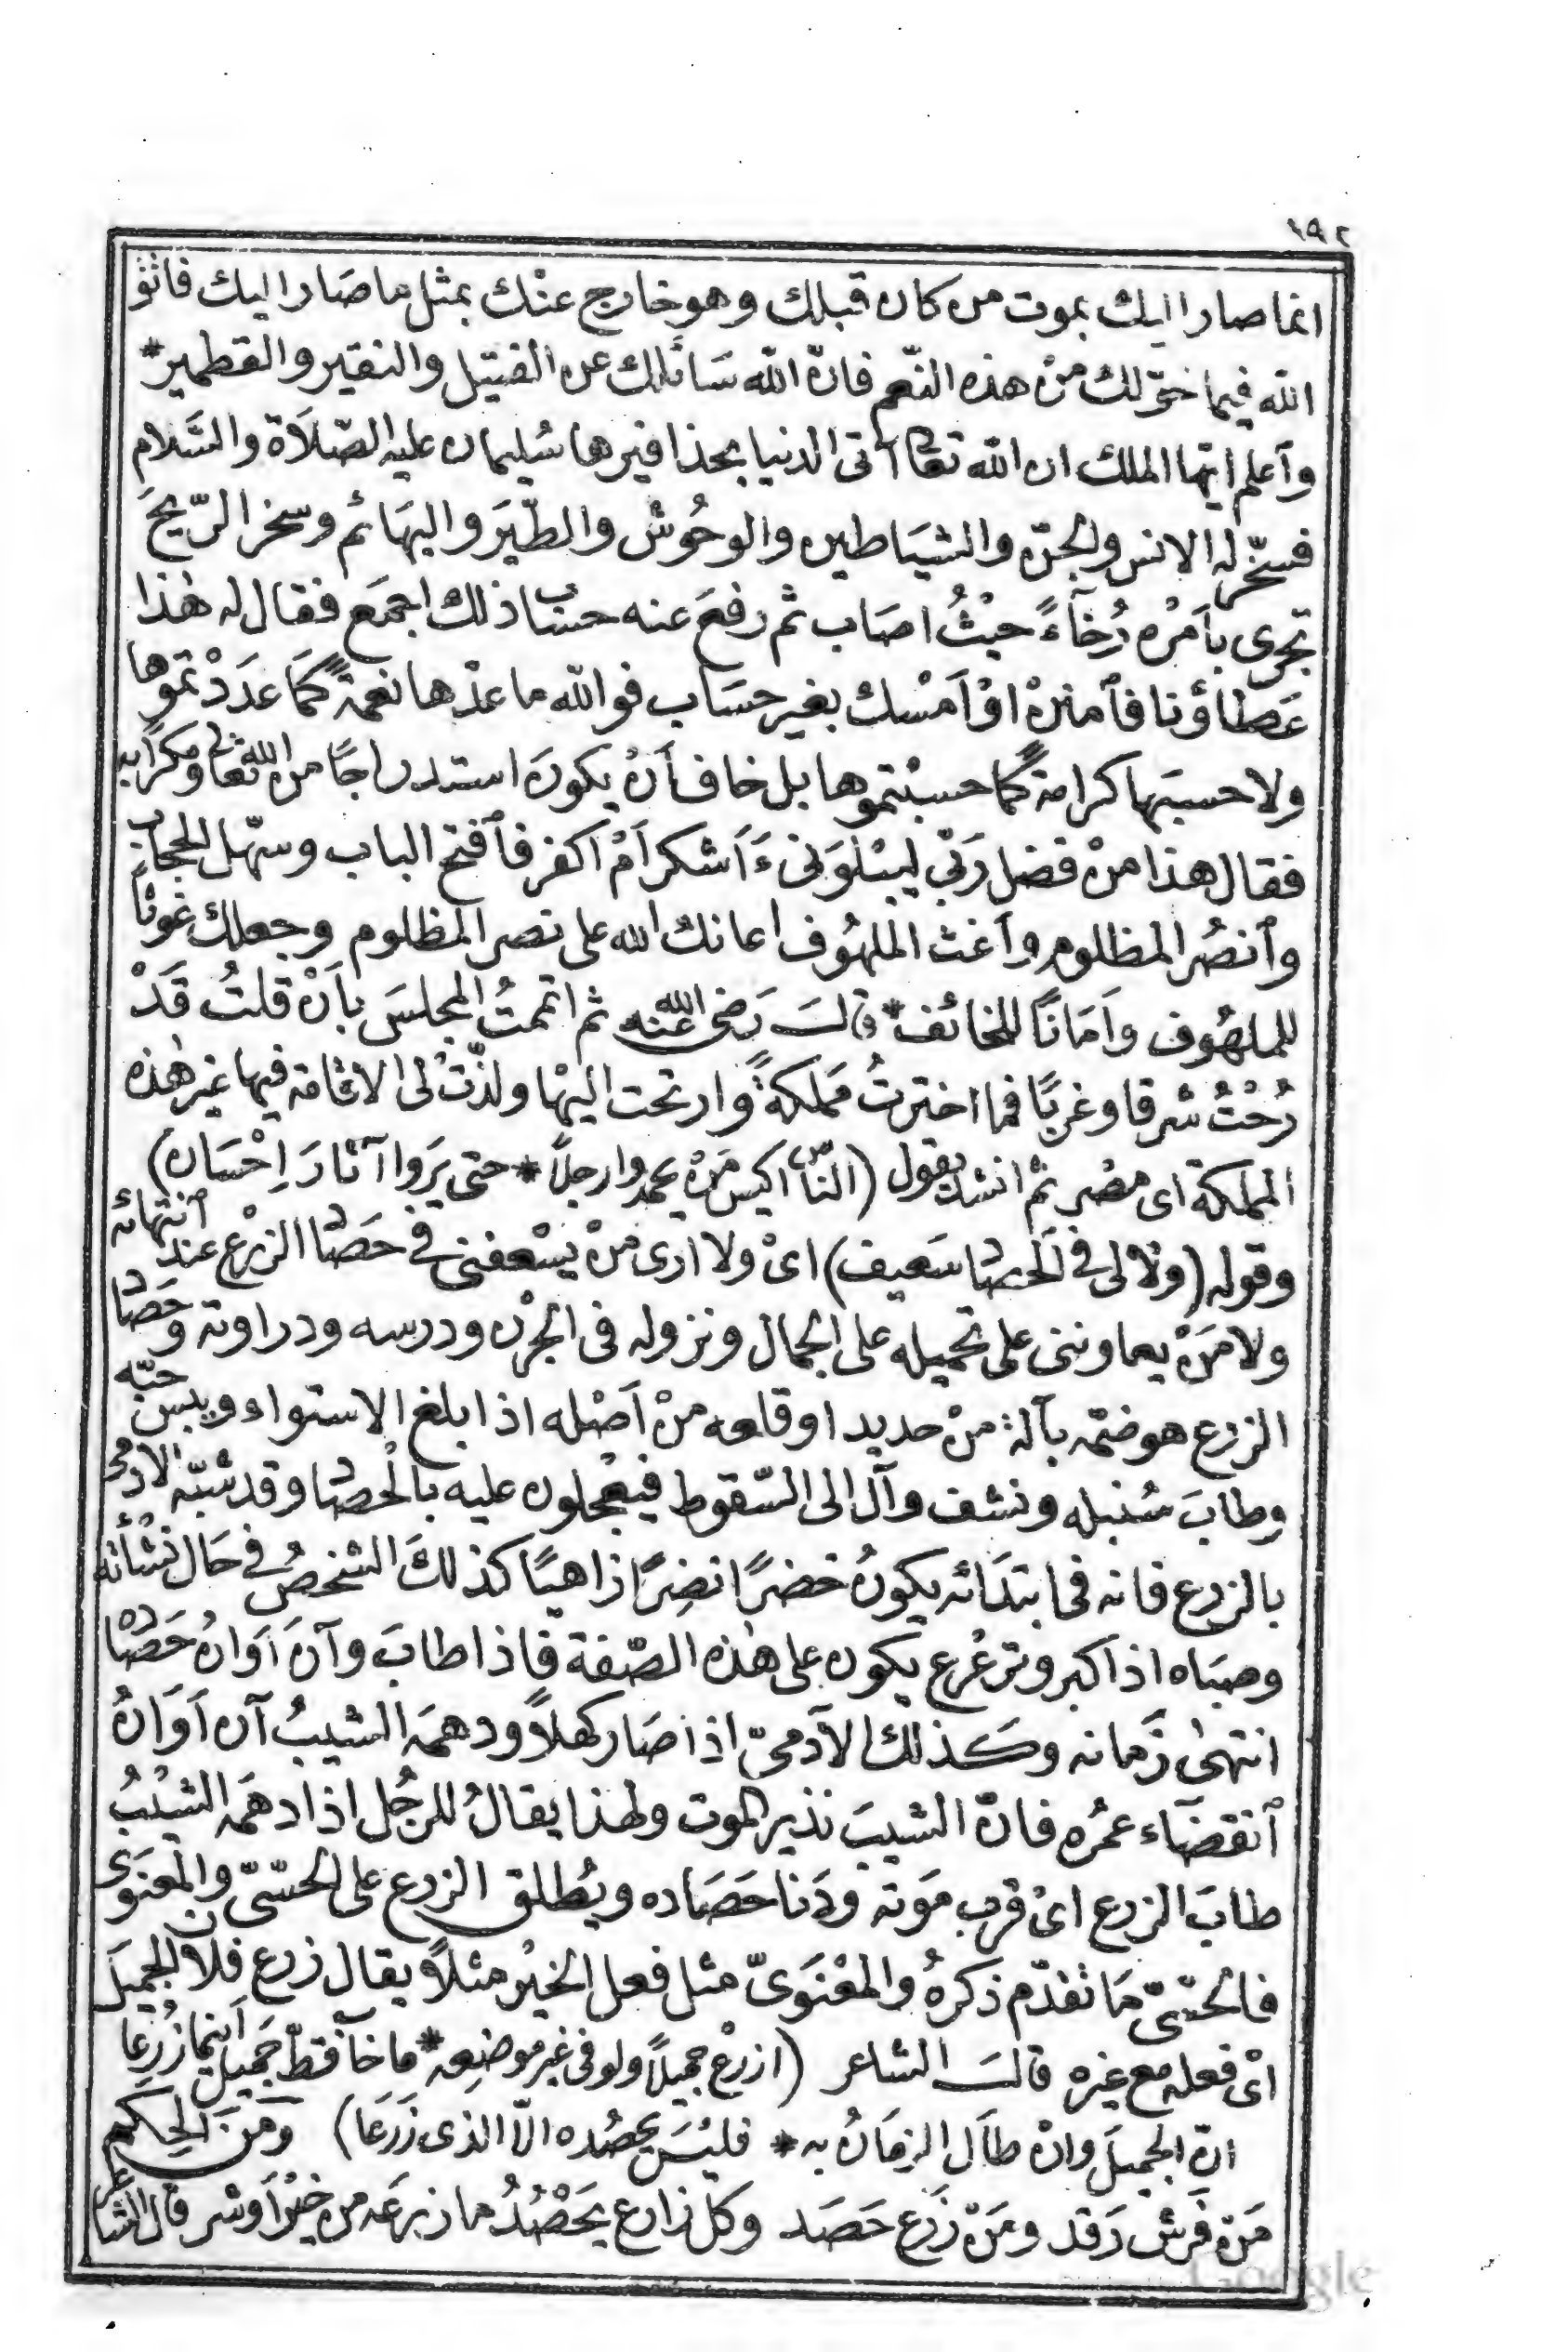 ١٩٢
انما صار اليك بموت من كان قبلك وهو خارج عنك بمثل ما صار اليك فاتق
الله فيما خوّلك منْ هذه النّعم فانّ الله سَائلك عن الفتيل والنقير والقطمير *
وٱعلم ايّها الملك ان الله تعالى آتى الدنيا بحذافيرها سُليمان عليه الصّلاَة والسَّلام
فسخّر له الانس والجنّ والشيَاطين والوحُوش والطّيَر والبهَائم وسخر الرّيحَ
تجرى بأمْره رُخآءً حيْثُ اصَاب ثم رفعَ عنه حسَاب ذلك اجمَع فقال له هٰذا
عَطاؤنا فٱمننْ اوْ اَمْسك بغير حسَاب فو الله ما عدّها نعمةً كمَا عدَدْتموها
ولا حسبَها كرامة كما حسبْتموها بل خاف أنْ يكونَ استدراجًا من الله تعالى ومكرًا به
فقال هذا منْ فضل رَبّى ليبْلوَنى ءَاَشكر اَمْ اكفر فٱفتح الباب وسهّل الحجاب
وٱنصُر المظلوم وأغث الملهُوف اعانك الله على نصر المظلوم وجعلك غوثًا
للملهُوف واَمَانًا للخائف * قالَ رَضى الله عنه ثم اتممتُ المجلسَ باَنْ قلتُ قَدْ
دُحْتُ شرقا وغربًا فما اخترتُ مَملكةً وارتحت اليهْا ولذّتْ لى الاقامة فيها غير هٰذه
المملكة اى مصْر ثم انشد يقول (النّاس اكيس مَنْ يحمدوا رجلاً * حتى يَروا آثارَ اِحْسَان)
وقوله (ولا لى فى الحصَاد سَعيف) اىْ ولا ارى منْ يسْعفنى فى حَصَاد الزرْع عند ٱنتهائه
ولا مَنْ يعاوننى على تحميله على الجمال ونزوله فى الجرْن ودرسه ودراوته وحَصَاد
الزرع هو ضمّه بآلة منْ حديد او قلعه منْ اَصْله اذا بلغ الاستواء ويبس حبّه
وطابَ سُنبله ونشف وآل الى السّقوط فيعْجلون عليه بالْحصَاد وقد شبّه الادمى
بالزرع فانه فى ابتدَائه يكونُ خضرًا نضِرًا زاهيًا كذلكَ الشخصُ فى حَال نشْأته
وصبَاه اذا كبر وترعْرع يكون على هٰذه الصّفة فاذا طابَ وآنَ اَوَانُ حَصَاده
انتهىٰ زَمانه وكَذلك الآدمىّ اذا صَار كهلاً ودهمَه الشيبُ آن اَوَانُ
ٱنقضَاء عمُره فانّ الشيبَ نذير الموت ولهذا يقالُ للرجُل اذا دهمَه الشيْبُ
طابَ الزرع اىْ قرب مَوته ودَنا حَصَاده ويُطلق الزرع على الحسّىّ والمعْنوَى
فالْحسّىّ مَا تقدّم ذكرهُ والمعْنوَىّ مثل فعل الخيْر مثلاً يقال زرع فلان الجميلَ
اىْ فعله مع غيره قالَ الشاعر (ازرعْ جميلاً ولو فى غير موضِعه * ما خاَب قطّ جَميل اَينما زُرعا
انّ الجميلَ وانْ طاَل الزمَانُ به * فليْسَ يحصُده الّا الذى زَرَعَا) وَمنَ الحِكم
مَنْ فَرش رَقد ومَنْ زَرَع حَصَد وكل زارع يَحْصُدُ ما زرعَه من خيْر أوشر قال الشاعر